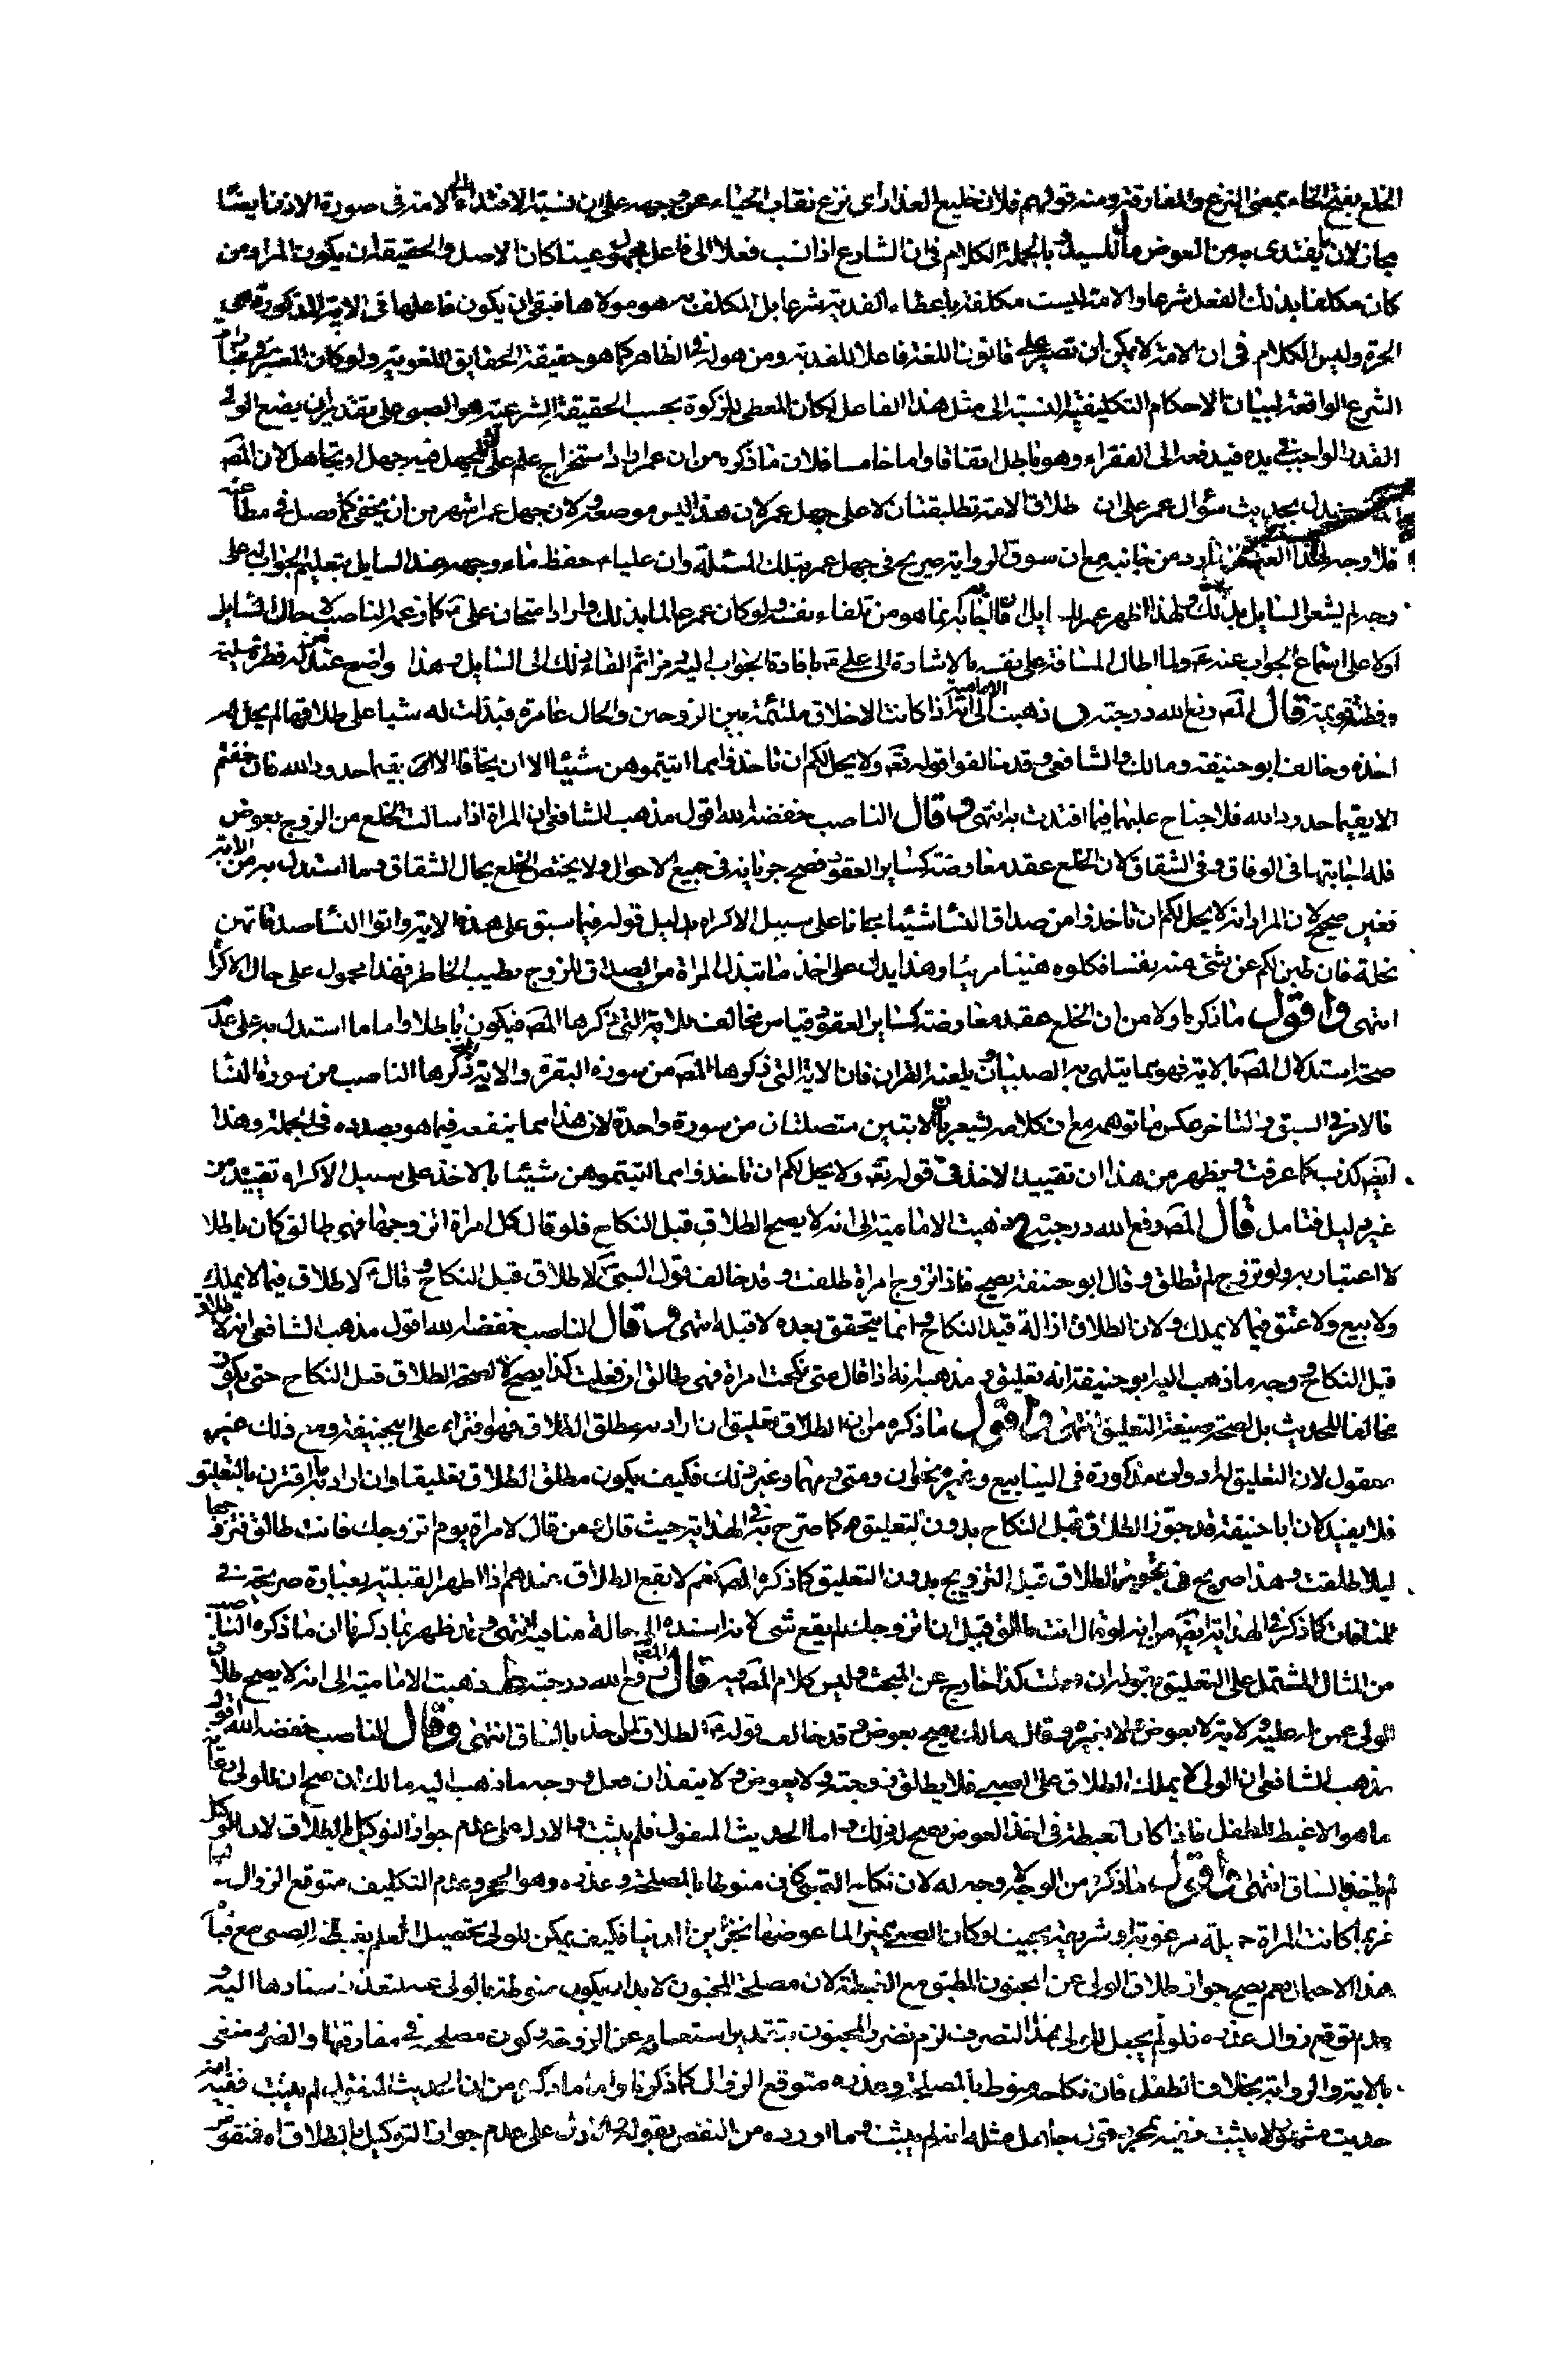 الخلع بفتح الخاء بمعنى النزع والمفارقة ومنه قولهم فلان خليع العذار أى نزع نقاب الحياء عن وجهه على ان نسبة الافتداء الى الامة فى صورة الاذن ايضا
مجاز لان ما يفتدى به من العوض مال السيد وبالجملة الكلام فى ان الشارع اذا نسب فعلا الى فاعل كان الاصل والحقيقة ان يكون المراد من
كان مكلفا بذلك الفعل شرعا والامة ليست مكلفة باعطاء الفدية شرعا بل المكلف به هو مولاها فبقى ان يكون فاعلها فى الاية المذكورة هى
الحرة وليس الكلام فى ان الامة لا يمكن ان تصير على قانون اللغة فاعلا للفدية ومن هو له فى الظاهر كما هو حقيقة الحقايق اللغوية ولو كان المعتبر فى
الشرع الواقعة لبيان الاحكام التكليفية النسبة الى مثل هذا الفاعل لكان المعطى للزكوة بحسب الحقيقة الشرعية هو الصبى على تقدير ان يضع الولى
القدر الواجب فى يده فيدفعه الى الفقراء وهو باطل اتفاقا واما خامسا فلان ما ذكره من ان عمر اراد استخراج علم على جهل او تجاهل لان المصَ
بحديث سؤال عمر على ان طلاق الامة تطليقتان لا على جهل عمر لان هذا ليس موضعه ولان جهل عمر اشهر من ان يخفى كما فصل فى مطاعنه
فلا وجه لهذا من جانبه مع ان سوق الرواية صريح فى جهل عمر بتلك المسئلة وان عليا ع حفظ ماء وجهه عند السايل بتعليم الجواب له على
وجه لم يشعر السايل بذلك ولهذا اظهر عمر انما هو من تلقاء نفسه ولو كان عمر عالما بذلك واراد امتحان على ع كما زعمه الناصب لاحال السايل
اولا على استماع الجواب عنه ع ولما اطال المسافة على نفسه بالاشارة الى على ع بافادة الجواب اليه من ثم القاء ذلك الى السايل وهذا واضح عند من له فطرة سليمة
وفطنة قويمة قال المصَ رفع الله درجته ذهبت الامامية الى انه اذا كانت الاخلاق ملتئمة بين الزوجين والحال عامرة فبذلت له شيا على طلاقها لم يحل له
اخذه وخالف ابو حنيفة ومالك والشافعى وقد خالفوا قوله تع ولا يحل لكم ان تاخذوا مما اتيتموهن شيئا الا ان يخافا الا يقيما حدود الله فان خفتم
الا يقيما حدود الله فلا جناح عليهما فيما افتدت به انتهى وقال الناصب خفضه الله اقول مذهب الشافعى ان المراة اذا سالت الخلع من الزوج بعوض
فله اجابتها فى الوفاق وفى الشقاق لان الخلع عقد معاوضة كساير العقود فصح جريانه فى جميع الاحوال ولا يختص الخلع بحال الشقاق وما استدل به من الاية
فغير صحيح لان المراد انه لا يحل لكم ان تاخذوا من صداق النسا شيئا مجانا على سبيل الاكراه بدليل قوله فيما سبق على هذه الاية واتوا النسا صدقاتهن
نحلة فان طبن لكم عن شئ منه نفسا فكلوه هنيئا مريئا وهذا يدل على اخذ ما تبذل المراة من الصداق للزوج بطيب الخاطر فهذا محمول على حال الاكراه
انتهى واقول ما ذكره اولا من ان الخلع عقد معاوضة كساير العقود قياس مخالف للاية التى ذكرها المصَ فيكون باطلا واما ما استدل به على عدم
صحة استدلال المصَ بالاية فهو مما يتلهى به الصبيان ويلعنه القران فان الاية التى ذكرها المصَ من سورة البقرة والاية التى ذكرها الناصب من سورة النسا
فالامر فى السبق والتاخر عكس ما توهمه مع ان كلامه يشعر بان الايتين متصلتان من سورة واحدة لان هذا مما ينفعه فيما هو بصدده فى الجملة وهذا
ايضَ كذب كما عرفت ويظهر من هذا ان تقييد الاخذ فى قوله تع ولا يحل لكم ان تاخذوا مما اتيتموهن شيئا بالاخذ على سبيل الاكراه تقييد من
غير دليل فتامل قال المصَ رفع الله درجته ذهبت الامامية الى انه لا يصح الطلاق قبل النكاح فلو قال كل امراة اتزوجها فهى طالق كان باطلا
لا اعتبار به ولو تزوج لم تطلق وقال ابو حنيفة يصح فاذا تزوج امراة طلقت وقد خالف قول النبى ص لا طلاق قبل النكاح وقال ع لا طلاق فيما لا يملك
ولا بيع ولا عتق فيما لا يملك ولان الطلاق ازالة قيد النكاح وانما يتحقق بعده لا قبله انتهى وقال الناصب خفضه الله اقول مذهب الشافعى انه لا طلاق
قبل النكاح ووجه ما ذهب اليه ابو حنيفة انه تعليق ومذهبه انه اذا قال متى نكحت امراة فهى طالق ان فعلت كذا يصح لا لصحة الطلاق قبل النكاح حتى يكون
مخالفا للحديث بل لصحة صيغة التعليق انتهى واقول ما ذكره من ان الطلاق تعليق ان اراد به مطلق الطلاق فهو افتراء على ابى حنيفة ومع ذلك غير
معقول لان التعليق له ادوات مذكورة فى الينابيع وغيره نحو ان ومتى ومهما وغير ذلك فكيف يكون مطلق الطلاق تعليقا وان اراد به ما اقترن بالتعليق
فلا يفيد لان ابا حنيفة قد جوز الطلاق قبل النكاح بدون التعليق كما صرح به فى الهداية حيث قال من قال لامراة يوم اتزوجك فانت طالق فتزوجها
ليلا طلقت وهذا صريح فى تجويز الطلاق قبل التزويج بدون التعليق كما ذكره المصَ نعم لا يقع الطلاق عندهم اذا اظهر القبلية بعبارة صريحة فى
المنافات كما ذكر فى الهداية ايضَ من انه لو قال انت طالق قبل ان اتزوجك لم يقع شى لانه اسنده الى حالة منافية انتهى وقد ظهر بما ذكرنا ان ما ذكره الناصب
من المثال المشتمل على التعليق بقوله ان فعلت كذا خارج عن المبحث وليس كلام المصَ فيه قال المصَ رفع الله درجته ذهبت الامامية الى انه لا يصح طلاق
الولى عمن له عليه ولاية لا بعوض ولا بغيره وقال مالك يصح بعوض وقد خالف قوله ع الطلاق لمن اخذ بالساق انتهى وقال الناصب خفضه الله اقول
مذهب الشافعى ان الولى لا يملك الطلاق على الصبى فلا يطلق زوجته ولا بعوض ولا ينفذ ان فعل ووجه ما ذهب اليه مالك ان صح ان للولى رعاية
ما هو الاغبط للطفل فاذا كان الغبطة فى اخذ العوض يصح له ذلك واما الحديث المنقول فلم يثبت والا دل على عدم جواز التوكيل بالطلاق لان الوكيل
لم ياخذ بالساق انتهى واقول ما ذكره من الوجه لا وجه له لان نكاح الصبى كان منوطا بالمصلحة وعذره وهو الصغر وعدم التكليف متوقع الزوال
فربما كانت المراة جميلة مرغوبة او شريفة بحيث لو كان الصبى مميزا لما عوضها بخزاين الدنيا فكيف يمكن للولى تحصيل العلم بغبطة الصبى مع قيام
هذا الاحتمال نعم يصح جواز طلاق الولى عن المجنون المطبق مع الغبطة لان مصلحة المجنون لا بد ان يكون منوطة بالولى لتعذر اسنادها اليه و
عدم توقع زوال عذره فلو لم يجعل للولى هذا التصرف لزم تضرر المجنون بتقدير استغنائه عن الزوجة وكون مصلحته فى مفارقتها والضرر منفى
بالاية والرواية بخلاف الطفل فان نكاحه منوط بالمصلحة وعذره متوقع الزوال كما ذكرنا واما ما ذكره من ان الحديث المنقول لم يثبت ففيه انه
حديث مشهور ولا يثبت فيه بمجرد قول جاهل مثله انه لم يثبت وما اورده من النقض بقوله والا دل على عدم جواز التوكيل بالطلاق اه فنقول